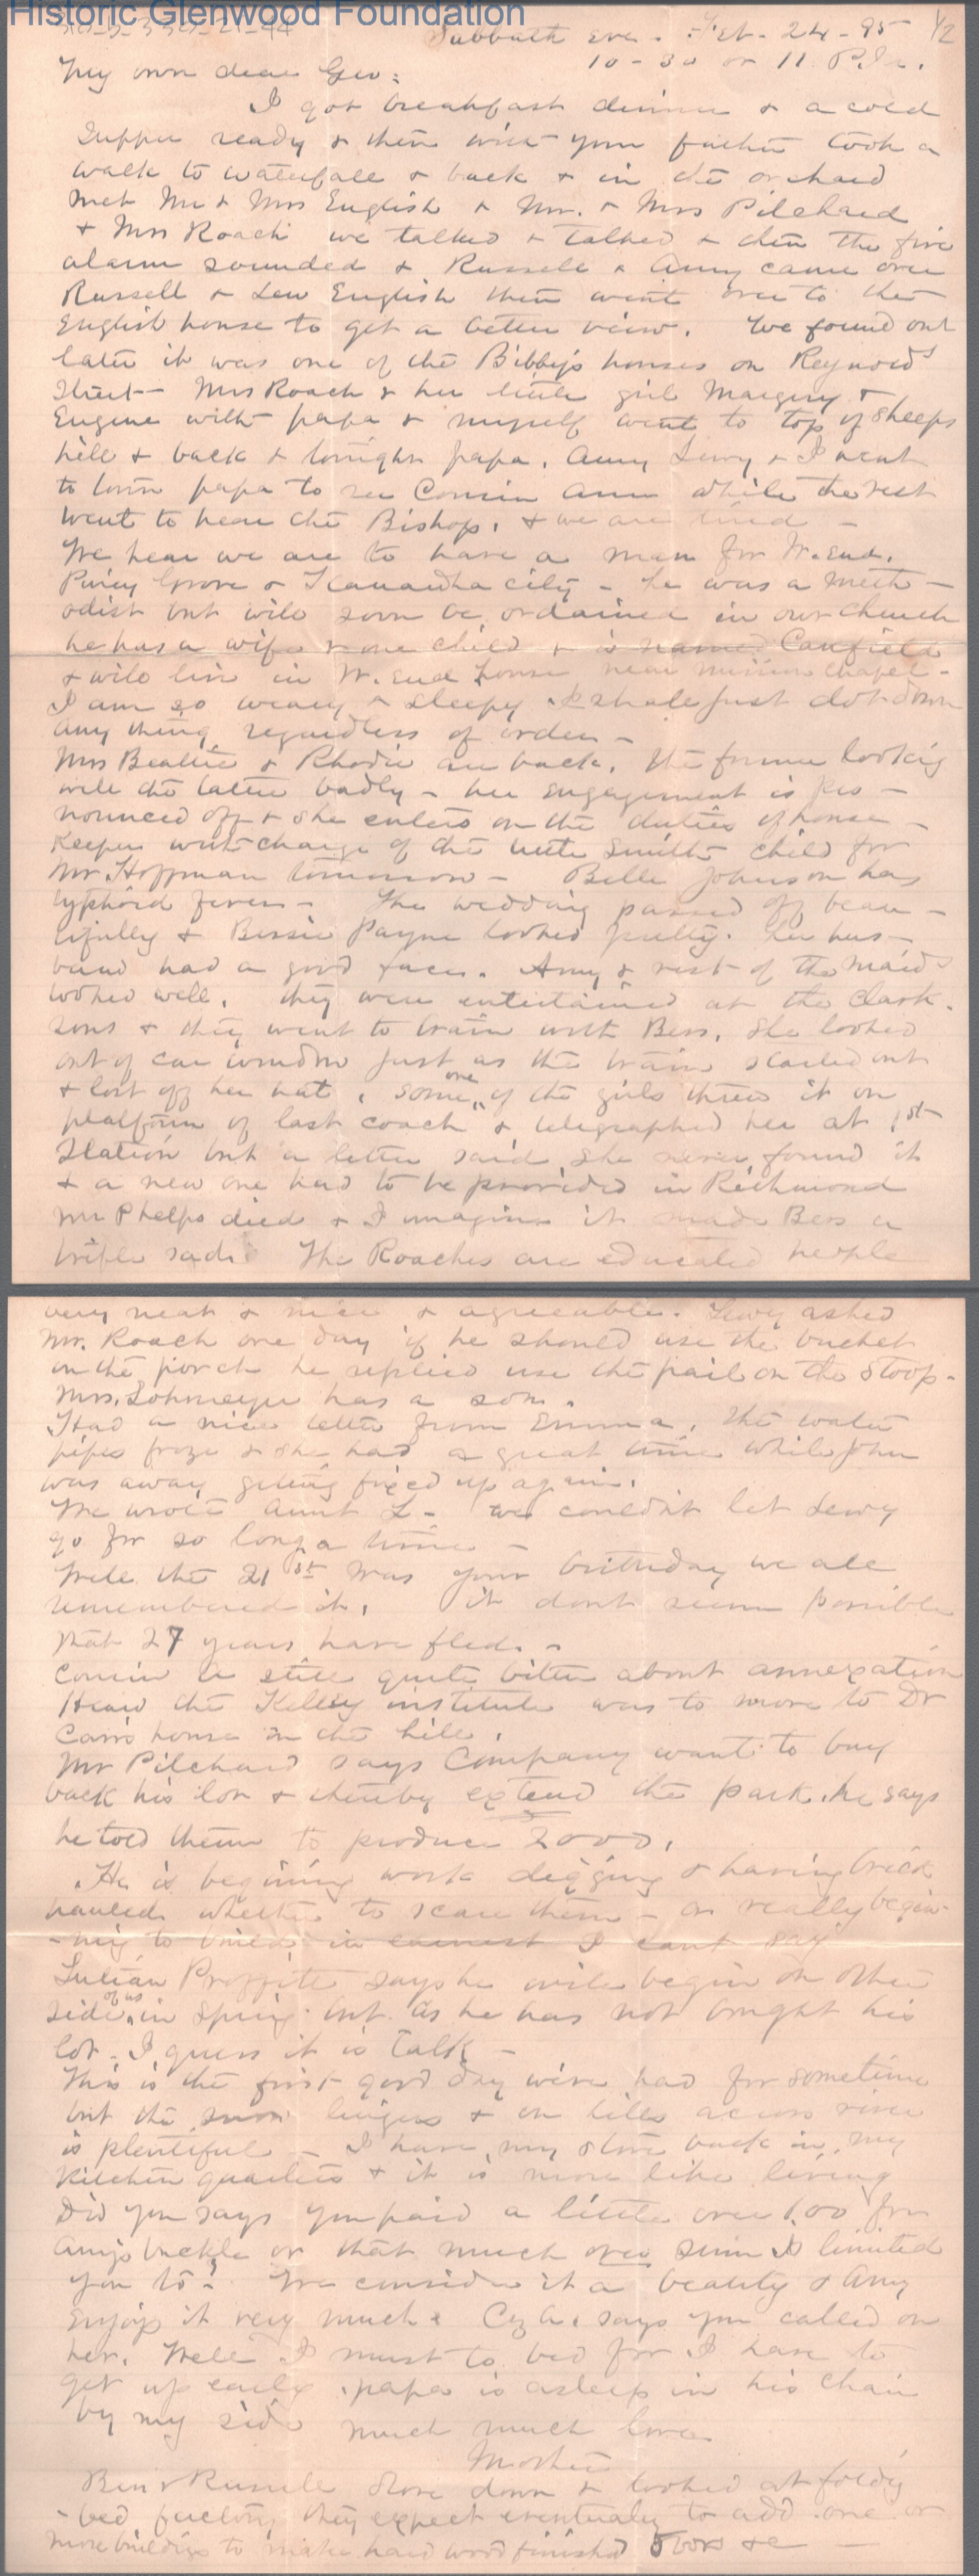 Historic Glenwood Foundation
Sabbath Eve. Feb. 24-95 1/2
10-30 or 11 P.M.
My own dear Geo:
I got breakfast dinner & a cold
supper ready & then with your father took a
walk to waterfall & back & in the orchard
met Mr & Mrs English & Mr. & Mrs Pilchard
& Mrs Roach we talked & talked & then the fire
alarm sounded & Russell & Amy came over
Russell & Lew English then went over to the
English house to get a better view. We found out
later it was one of the Bibby's houses on Reynolds
Street - Mrs Roach & her little girl Margery &
Eugene with papa & myself went to top of Sheeps
hill & back & tonight papa, Amy Lewy & I went
to town papa to see Cousin Ann while the rest
went to hear the Bishop, & we are tired -
We hear we are to have a man for W. End,
Piney Grove & Kanawha City - he was a Meth-
odist but will soon be ordained in our church
he has a wife & one child & is named Canfield
& will live in W. End house near mission chapel -
I am so weary & sleepy I shall just dot down
any thing regardless of order -
Mrs Beattie & Rhodie are back, the former looking
well the latter badly - her engagement is pro-
nounced off & she enters on the duties of house-
keeper with charge of the little Smith child for
Mr Hoffman tomorrow - Belle Johnson has
typhoid fever - The wedding passed off beau-
tifully & Bessie Payne looked pretty. her hus-
band had a good face. Amy & rest of the maids
looked well. they were entertained at the Clark-
sons & they went to train with Bess. She looked
out of car window just as the train started out
& lost off her hat, some one of the girls threw it on
platform of last coach & telegraphed her at 1st
Station but a letter said she never found it
& a new one had to be provided in Richmond
Mr Phelps died & I imagine it made Bess a
trifle sad. The Roaches are educated people
very neat & nice & agreeable. Lewy asked
Mr. Roach one day if he should use the bucket
on the porch he replied use the pail on the stoop.
Mrs. Lohmeyer has a son.
Had a nice letter from Emma, the water
pipes froze & she had a great time while John
was away getting fixed up again.
We wrote Aunt L- we couldn't let Lewy
go for so long a time -
Well the 21st was your birthday we all
remembered it, it dont seem possible
that 27 years have fled. -
Cousin A still quite bitter about annexation
Heard the Kelley institute was to move to Dr
Cairs house on the hill.
Mr Pilchard says Company want to buy
back his lot & thereby extend the park, he says
he told them to produce 2000.
He is begining work digging & having brick
hauled whether to scare them - or really begin-
-ing to build in earnest I cant say
Julian Proffitt says he will begin on other
side of us in Spring but as he has not bought his
lot - I guess it is talk -
This is the first good day we've had for sometime
but the snow lingers & on hills across river
is plentiful - I have my stove back in my
kitchen quarters & it is more like living
Did you say you paid a little over 1.00 for
Amy's buckle or that much over sum I limited
you to? We consider it a beauty & Amy
enjoys it very much & Cz A. says you called on
her. Well I must to bed for I have to
get up early, papa is asleep in his chair
by my side much much love
Mother
Ben & Russell drove down & looked at foldg
-bed factory they expect eventualy to add one or
more buildings to make hard wood finished doors &c -